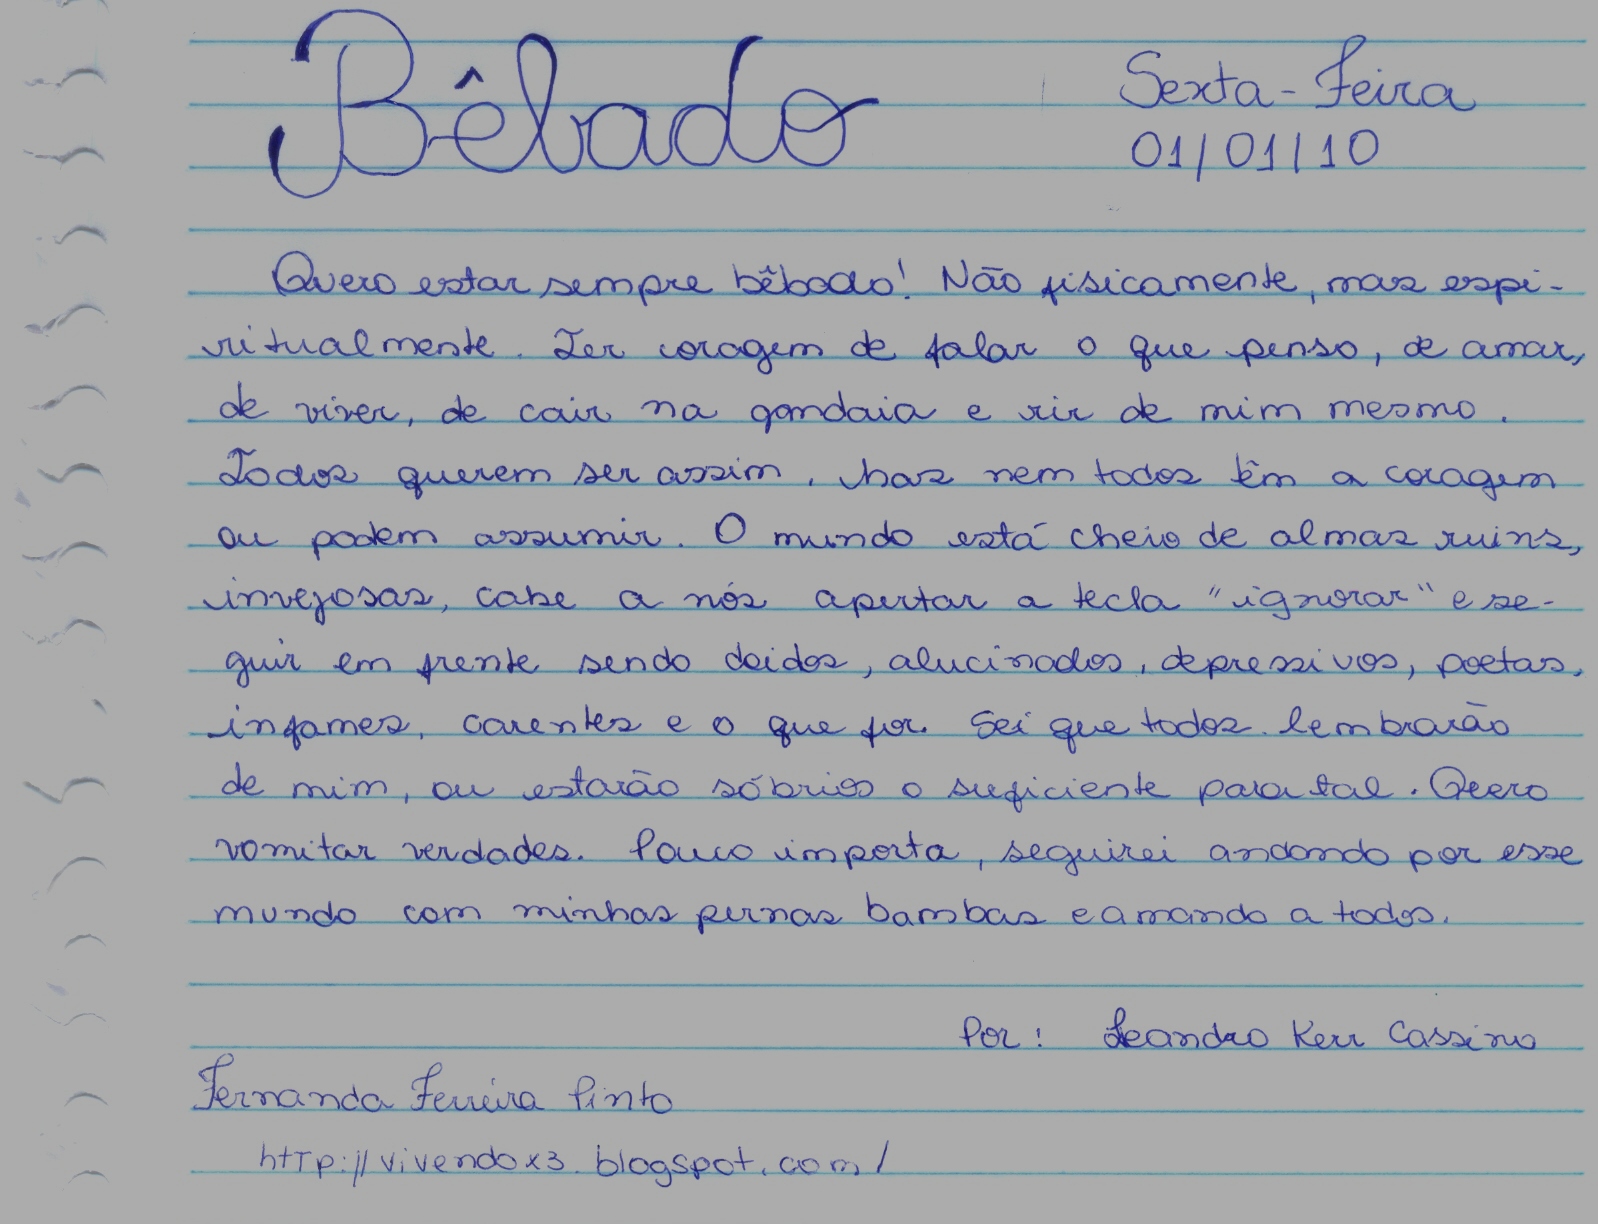 Bêbado
Sexta-Feira
01/01/10
Quero estar sempre bêbado! Não fisicamente, mas espi-
ritualmente. Ter coragem de falar o que penso, de amar,
de viver, de cair na gandaia e rir de mim mesmo.
Todos querem ser assim, mas nem todos têm a coragem
ou podem assumir. O mundo está cheio de almas ruins,
invejosas, cabe a nós apertar a tecla "ignorar" e se-
guir em frente sendo doidos, alucinados, depressivos, poetas,
infames, carentes e o que for. Sei que todos lembrarão
de mim, ou estarão sóbrios o suficiente para tal. Quero
vomitar verdades. Pouco importa, seguirei andando por esse
mundo com minhas pernas bambas e amando a todos.
Por: Leandro Kerr Cassino
Fernanda Ferreira Pinto
http://vivendox3.blogspot.com/